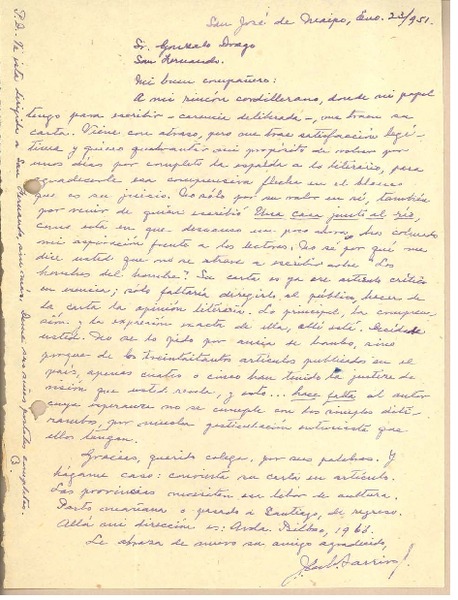 San José de Maipo, Eno. 23/951.
Sr. Gonzalo Drago
San Fernando.
Mi buen compañero:
A mi rincón cordillerano, donde ni papel
tengo para escribir - carencia deliberada -, me traen su
carta. Viene con atraso, pero me trae satisfacción legí-
tima y quiero quebrantar mi propósito de volver por
unos días por completo la espalda a lo literario, para
agradecerle esa comprensiva flecha en el blanco
que es su juicio. No sólo por su valor en sí, también
por venir de quien escribió Una casa junto al río,
como esta en que descanso un poco ahora,
mi aspiración frente a los lectores. No sé por qué me
dice usted que no se atreve a escribir sobre "Los
hombres del hombre". Su carta es ya ese artículo crítico
en esencia; sólo faltaría dirigirlo al público, hacer de
la carta la opinión literaria. Lo principal, la compren-
sión, y la expresión exacta de ella, allí está. Decídase
usted. No se lo pido por ansia de bombo, sino
porque de los treintaitantos artículos publicados en el
país, apenas cuatro o cinco han tenido la justeza de
visión que usted revela, y esto... hace falta al autor
cuya esperanza no se cumple con los simples diti-
rambos, por mucha gesticulación entusiasta que
ellos tengan.
Gracias, querido colega, por sus palabras. Y
hágame caso: convierta su carta en artículo.
Las provincias necesitan esa labor de cultura.
Parto mañana o pasado a Santiago, de regreso.
Allá mi dirección es: Avda. Bilbao, 1966.
Le abraza de nuevo su amigo agradecido,
P.D. - Va esta dirigida a San Fernando, sin más. Deme sus señas postales completas.